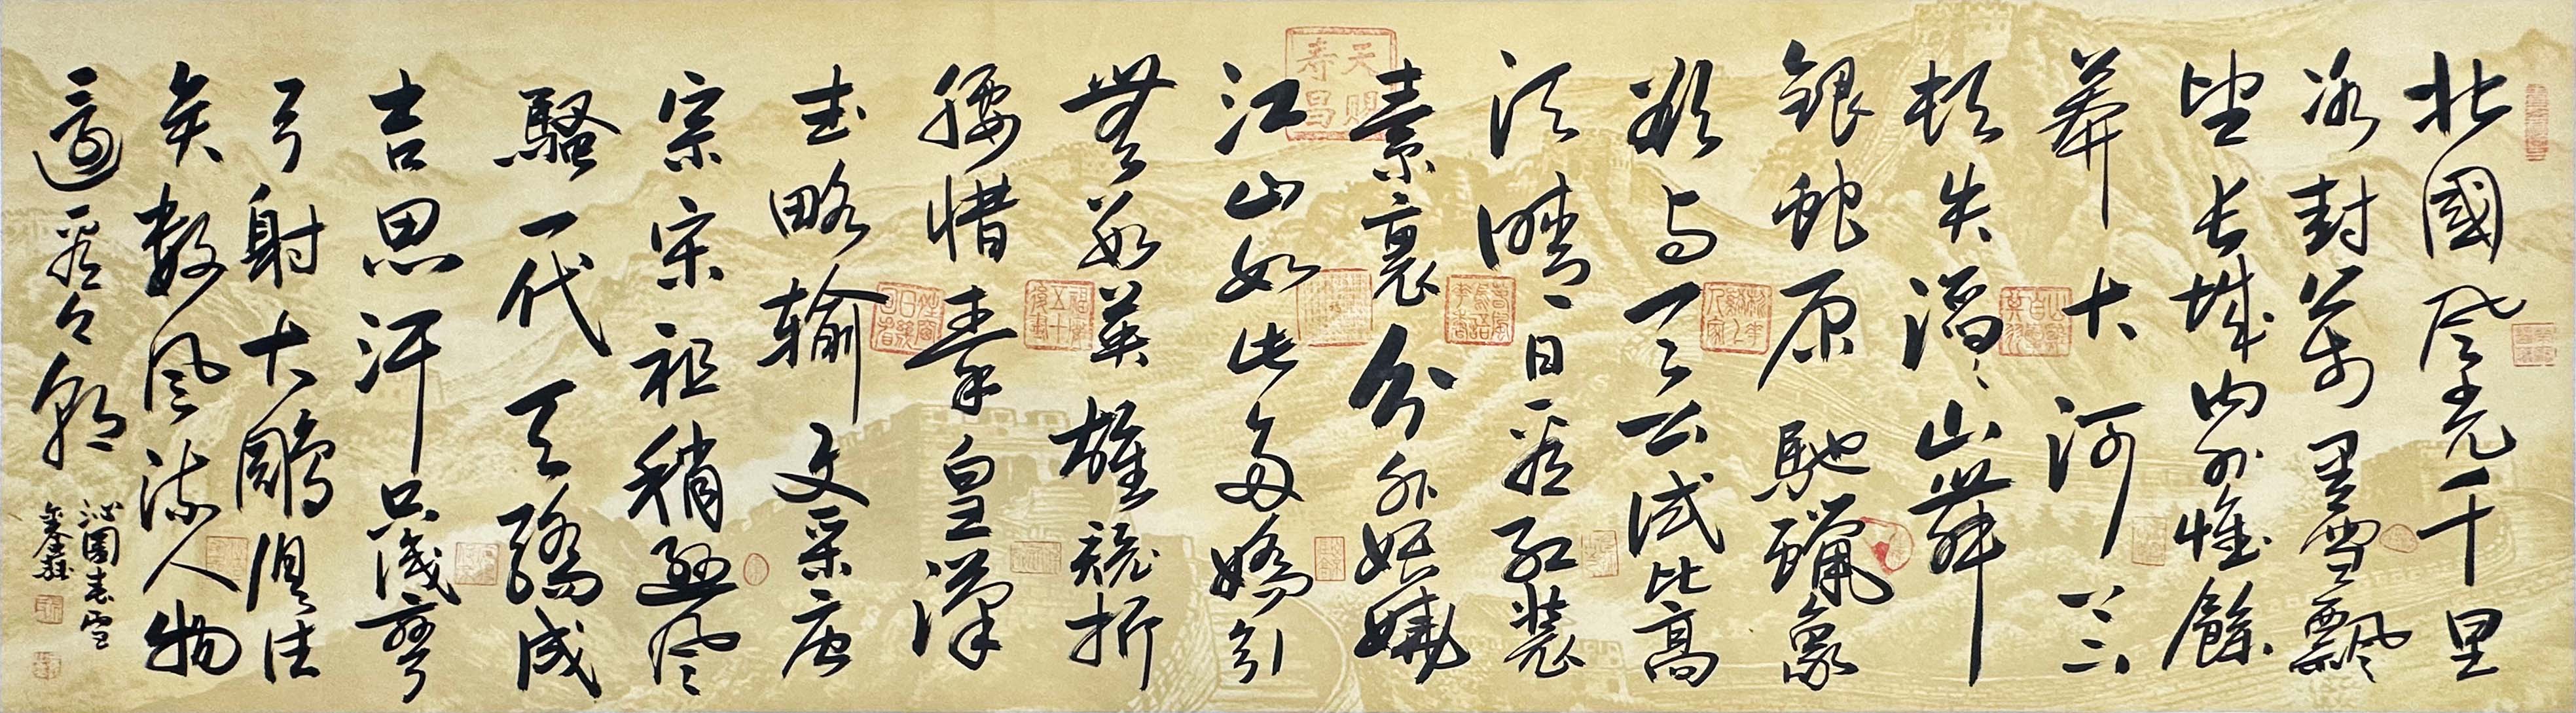 北國風光千里
冰封萬里雪飄
望长城内外惟餘
莽大河上下
頓失滔〻山舞
銀蛇原馳蠟象
欲与天公試比高
须晴日看红装
素裹分外妖嬈
江山如此多嬌引
無數英雄競折
腰惜秦皇漢
武略輸文采唐
宗宋祖稍逊風
騷一代天驕成
吉思汗只識彎
弓射大雕俱往
矣數風流人物
還看今朝
沁園春雪
天賜寿昌